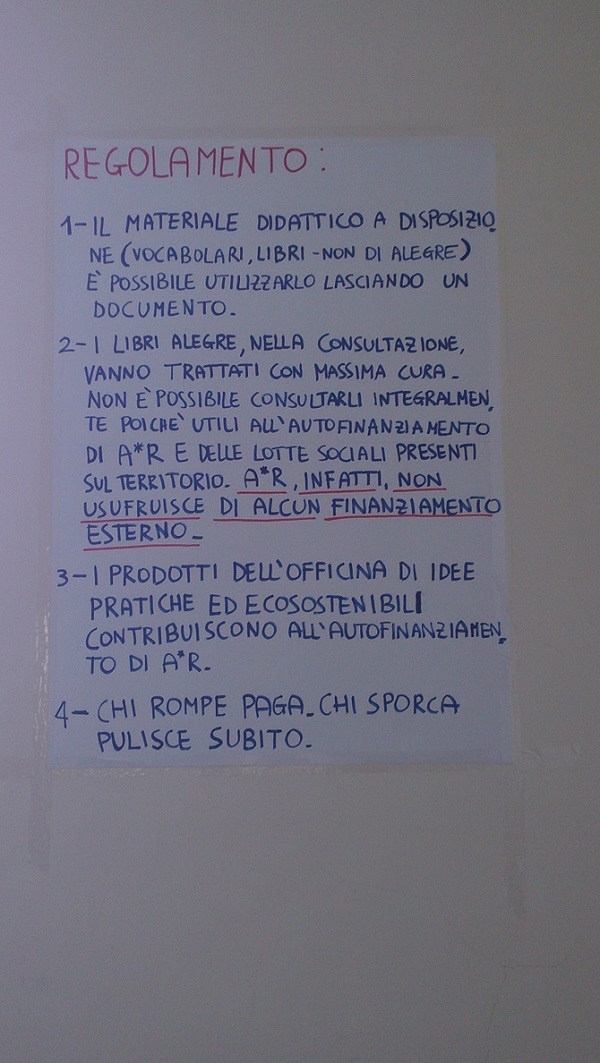 REGOLAMENTO:
1-IL MATERIALE DIDATTICO A DISPOSIZIO
NE (VOCABOLARI, LIBRI-NON DI ALEGRE)
È POSSIBILE UTILIZZARLO LASCIANDO UN
DOCUMENTO.
2-I LIBRI ALEGRE, NELLA CONSULTAZIONE,
VANNO TRATTATI CON MASSIMA CURA.
NON È POSSIBILE CONSULTARLI INTEGRALMEN
TE POICHÈ UTILI ALL'AUTOFINANZIAMENTO
DI A*R E DELLE LOTTE SOCIALI PRESENTI
SUL TERRITORIO. A*R, INFATTI, NON
USUFRUISCE DI ALCUN FINANZIAMENTO
ESTERNO.
3-I PRODOTTI DELL'OFFICINA DI IDEE
PRATICHE ED ECOSOSTENIBILI
CONTRIBUISCONO ALL'AUTOFINANZIAMEN
TO DI A*R.
4-CHI ROMPE PAGA. CHI SPORCA
PULISCE SUBITO.